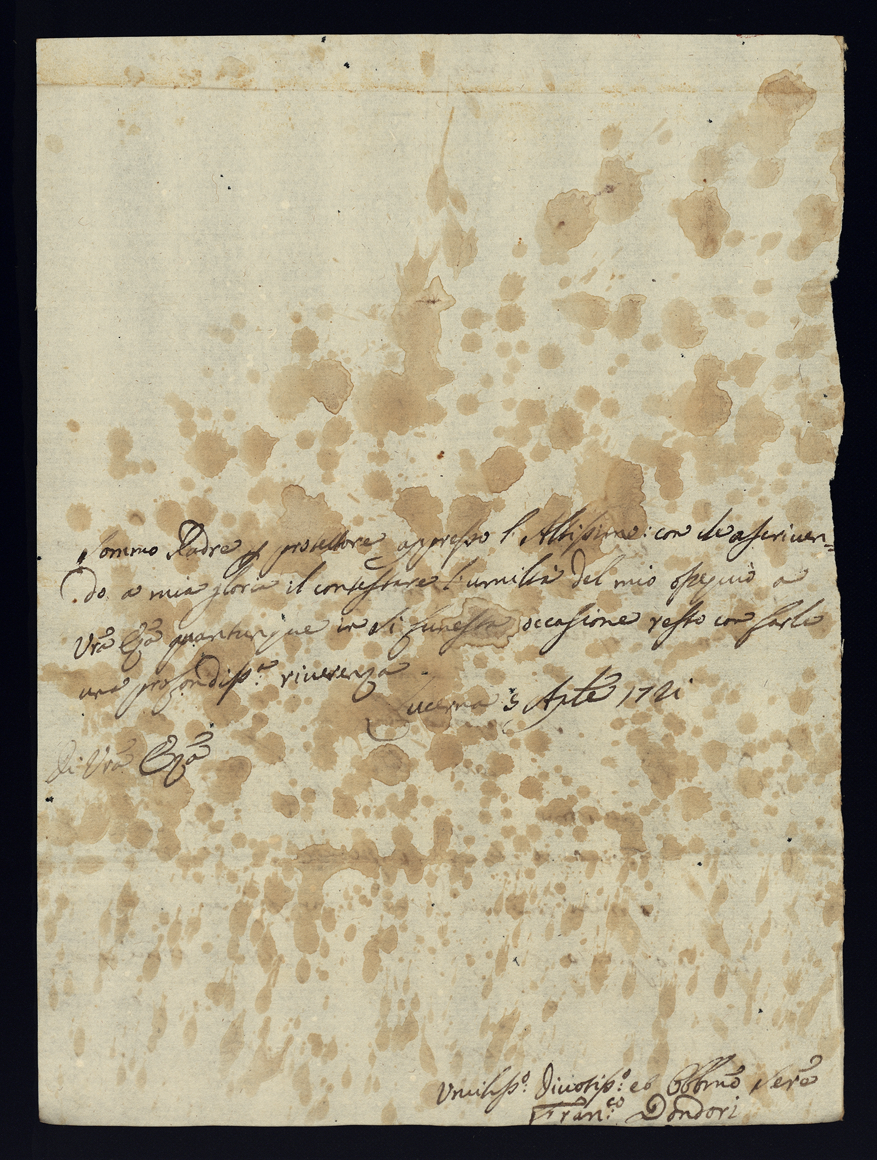 Sommo Padre p protettore appresso l'Altissimo: con che ascriven=
do a mia gloria il contestare l'umiltà del mio ossequio a
Vrã Eccã quantunque in si funesta occasione resto con farle
una profondissª riverenza
Lucerna 3 Aple 1721
Di Vrã Eccã
Umilissº. Divotissº. et Obbmõ Serẽ
Franco Dondori